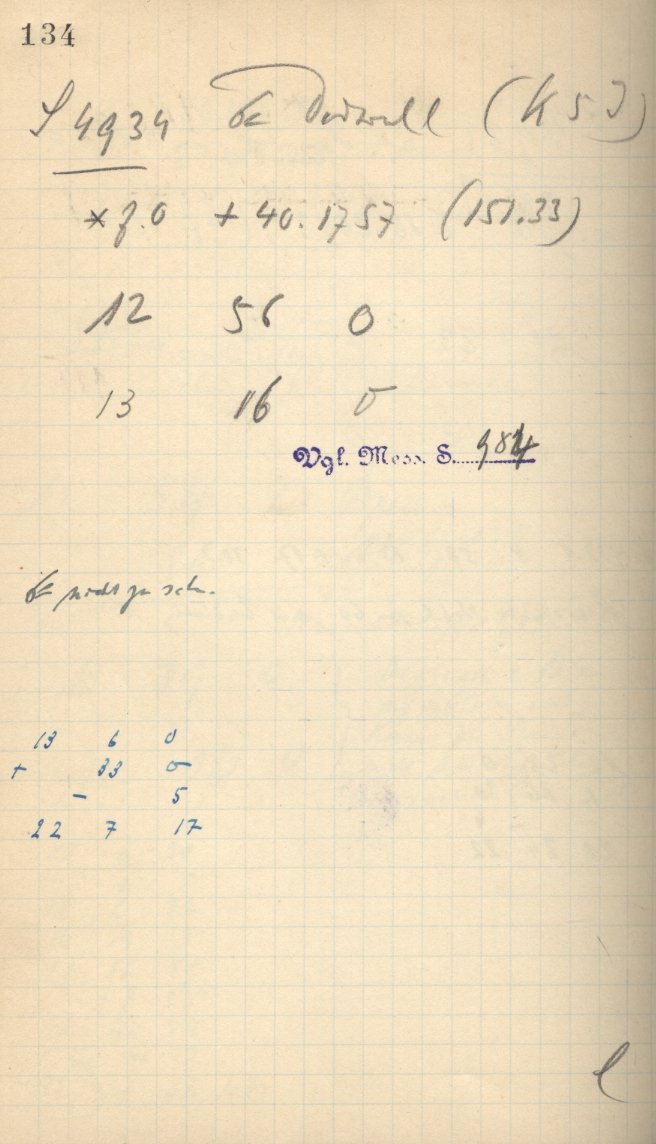 134
S 4934 (K 5
* 7.0 + 40.1757 (151.33)
12 56 0
13 16 0
Vgl. Mess. S. 984
nicht zu seh.
13 6 0
+ 33 0
- 5
22 7 17